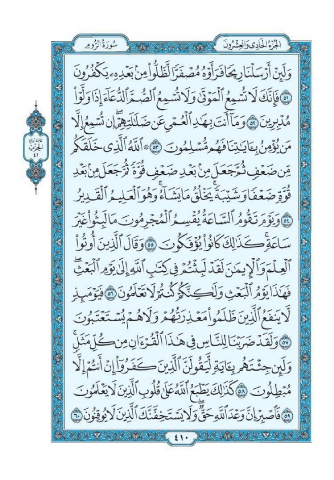 الجزء الحادي والعشرون
سورة الروم
وَلَئِنْ أَرْسَلْنَا رِيحًا فَرَأَوْهُ مُصْفَرًّا لَّظَلُّوا مِنْ بَعْدِهِ يَكْفُرُونَ
٥١ فَإِنَّكَ لَا تُسْمِعُ الْمَوْتَىٰ وَلَا تُسْمِعُ الصُّمَّ الدُّعَاءَ إِذَا وَلَّوْا
مُدْبِرِينَ ٥٢ وَمَا أَنتَ بِهَٰدِ الْعُمْيِ عَن ضَلَٰلَتِهِمْ إِن تُسْمِعُ إِلَّا
مَن يُؤْمِنُ بِـَٔايَٰتِنَا فَهُم مُّسْلِمُونَ ٥٣ ۞ اللَّهُ الَّذِي خَلَقَكُم
مِّن ضَعْفٍ ثُمَّ جَعَلَ مِنْ بَعْدِ ضَعْفٍ قُوَّةً ثُمَّ جَعَلَ مِنْ بَعْدِ
قُوَّةٍ ضَعْفًا وَشَيْبَةً يَخْلُقُ مَا يَشَاءُ وَهُوَ الْعَلِيمُ الْقَدِيرُ
٥٤ وَيَوْمَ تَقُومُ السَّاعَةُ يُقْسِمُ الْمُجْرِمُونَ مَا لَبِثُوا غَيْرَ
سَاعَةٍ كَذَٰلِكَ كَانُوا يُؤْفَكُونَ ٥٥ وَقَالَ الَّذِينَ أُوتُوا
الْعِلْمَ وَالْإِيمَٰنَ لَقَدْ لَبِثْتُمْ فِي كِتَٰبِ اللَّهِ إِلَىٰ يَوْمِ الْبَعْثِ
فَهَٰذَا يَوْمُ الْبَعْثِ وَلَٰكِنَّكُمْ كُنتُمْ لَا تَعْلَمُونَ ٥٦ فَيَوْمَئِذٍ
لَّا يَنفَعُ الَّذِينَ ظَلَمُوا مَعْذِرَتُهُمْ وَلَا هُمْ يُسْتَعْتَبُونَ
٥٧ وَلَقَدْ ضَرَبْنَا لِلنَّاسِ فِي هَٰذَا الْقُرْءَانِ مِن كُلِّ مَثَلٍ
وَلَئِن جِئْتَهُم بِـَٔايَةٍ لَّيَقُولَنَّ الَّذِينَ كَفَرُوا إِنْ أَنتُمْ إِلَّا
مُبْطِلُونَ ٥٨ كَذَٰلِكَ يَطْبَعُ اللَّهُ عَلَىٰ قُلُوبِ الَّذِينَ لَا يَعْلَمُونَ
٥٩ فَاصْبِرْ إِنَّ وَعْدَ اللَّهِ حَقٌّ وَلَا يَسْتَخِفَّنَّكَ الَّذِينَ لَا يُوقِنُونَ ٦٠
٤١٠